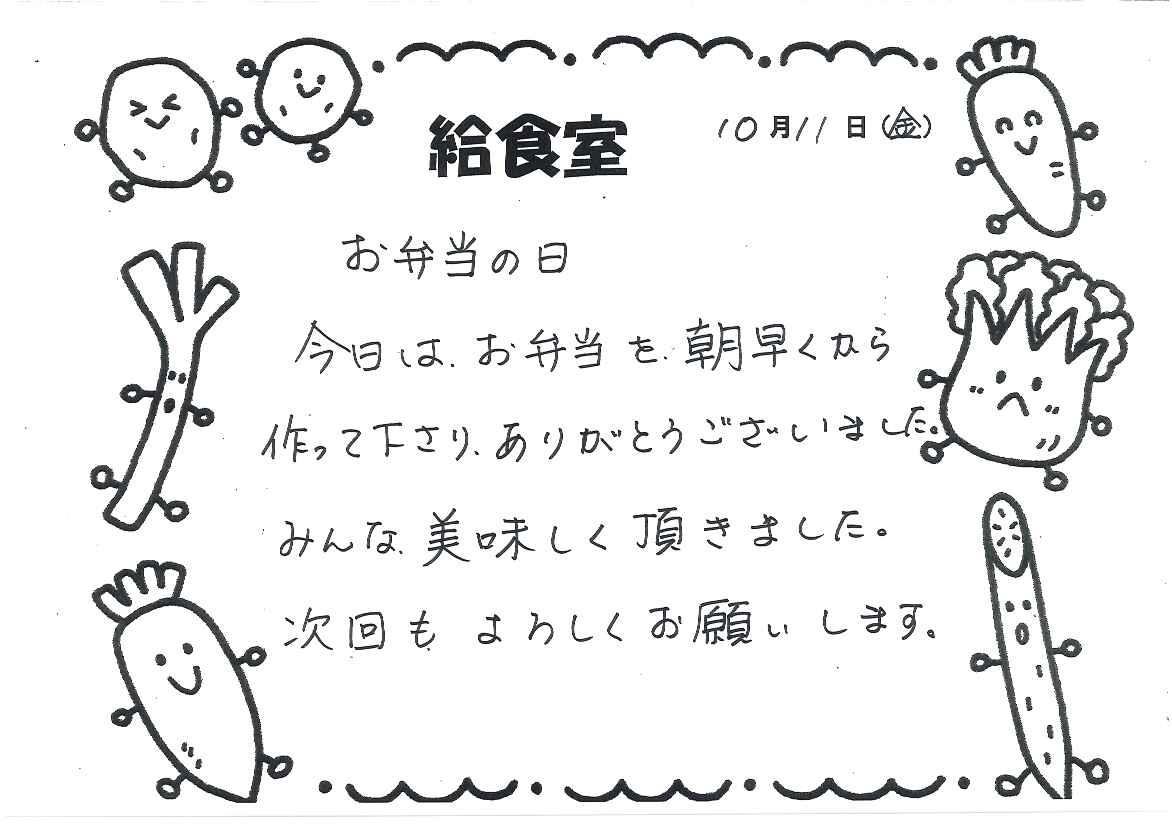 給食室
10月11日(金)
お弁当の日
今日は、お弁当を、朝早くから
作って下さり、ありがとうございました。
みんな、美味しく頂きました。
次回も よろしくお願いします。